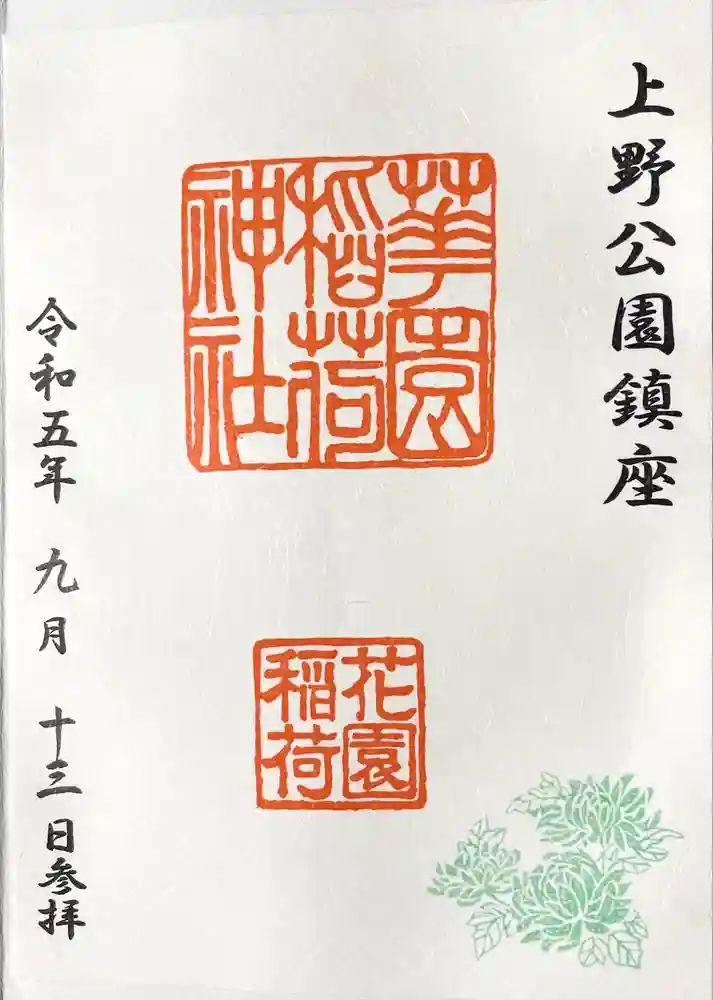 上野公園鎮座
華園
稲荷
神社
花園
稲荷
令和五年 九月 十三日参拝